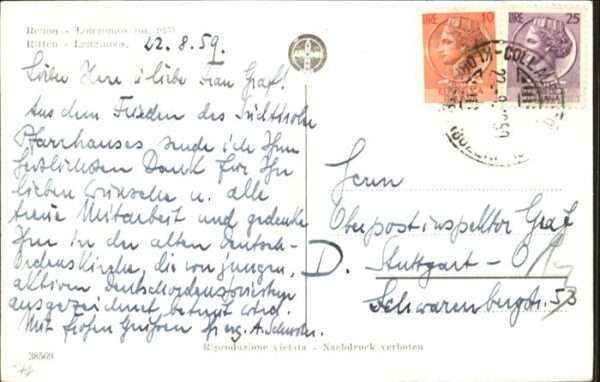 Renon - Longomoso m. 1211
Ritten - Lengmoos
22.8.59.
Lieber Herr u. liebe Frau Graf!
Aus dem Frieden des
Pfarrhauses sende ich Ihnen
herzlichsten Dank für Ihre
lieben Wünsche u. alle
treue Mitarbeit und gedenke
Ihrer in der alten Deutsch-
ordenskirche, die von jungen,
aktiven Deutschordenspriestern
ausgezeichnet betreut wird.
Mit frohen Grüßen Ihr
LIRE 10
LIRE 25
COLLALBO
Herrn
Oberpostinspektor Graf
D. Stuttgart - O
Schwarenbergstr. 53
Riproduzione vietata - Nachdruck verboten
38569